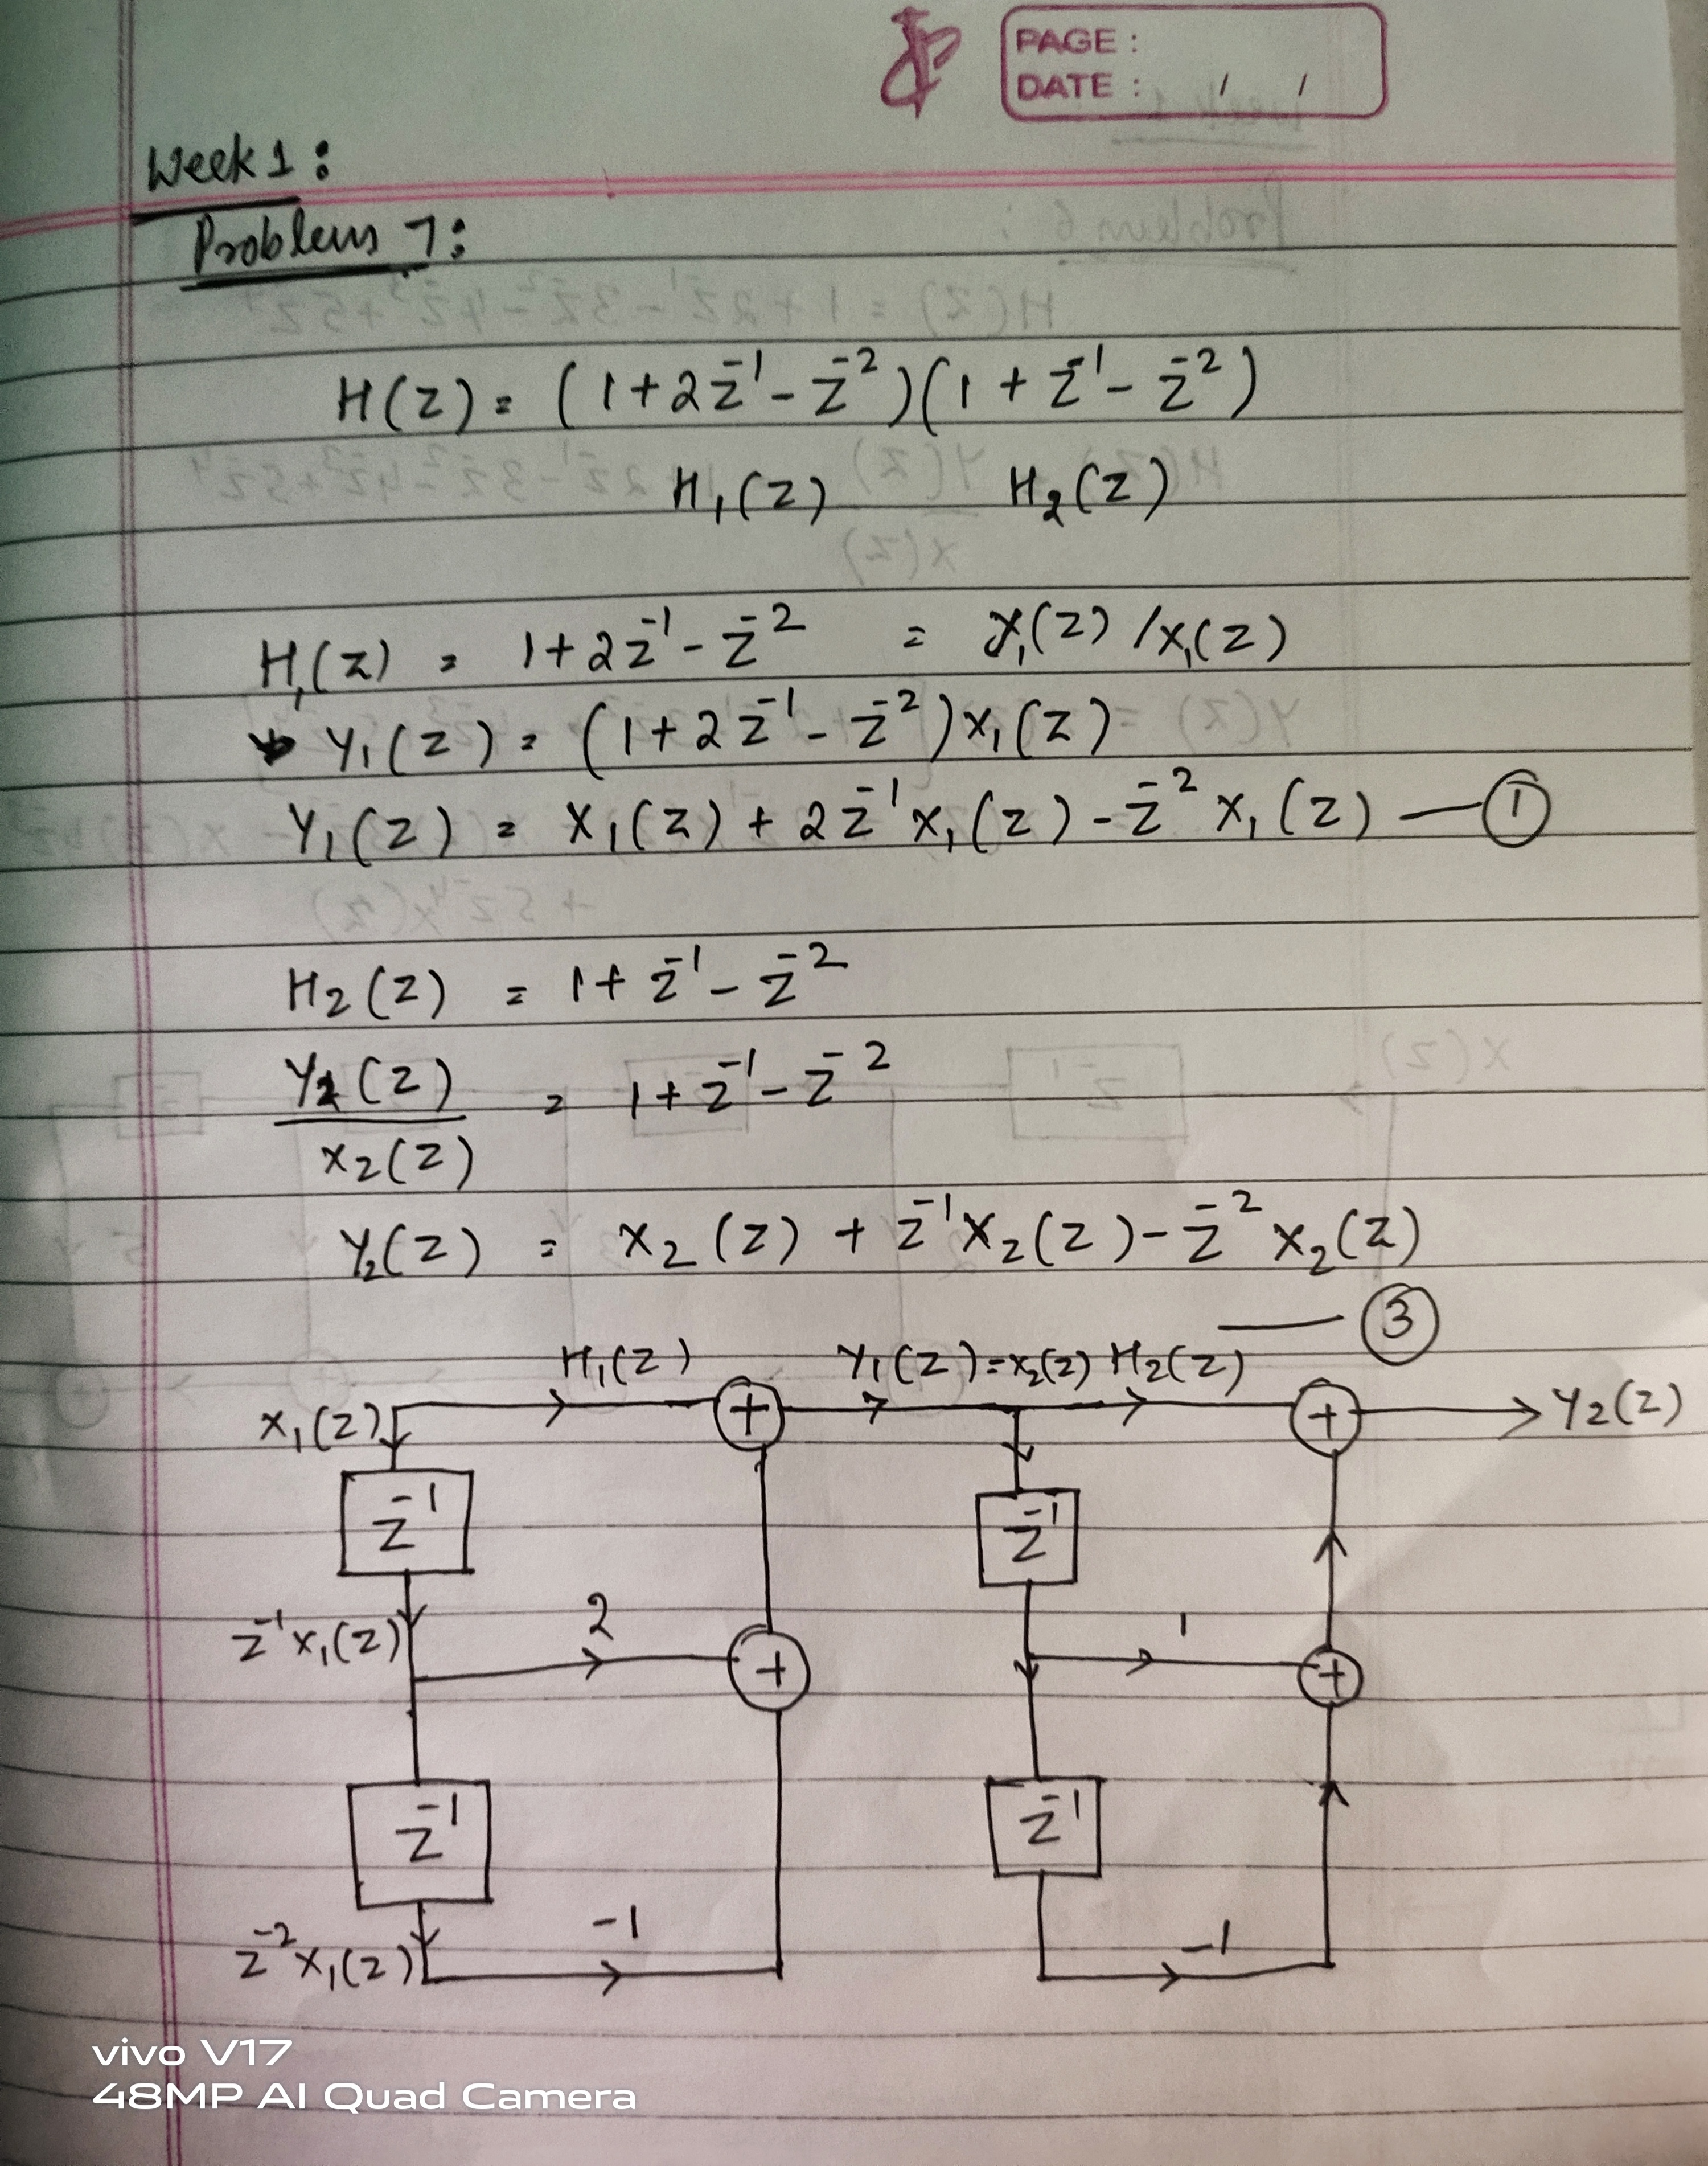 PAGE :
DATE : / /
Week 1:
Problem 7:
H(z) = (1+2z⁻¹-z⁻²)(1+z⁻¹-z⁻²)
H₁(z) H₂(z)
H₁(z) = 1+2z⁻¹-z⁻² = Y₁(z)/X₁(z)
Y₁(z) = (1+2z⁻¹-z⁻²)X₁(z)
Y₁(z) = X₁(z)+2z⁻¹X₁(z)-z⁻²X₁(z) — ①
H₂(z) = 1+z⁻¹-z⁻²
Y₂(z) = 1+z⁻¹-z⁻²
X₂(z)
Y₂(z) = X₂(z)+z⁻¹X₂(z)-z⁻²X₂(z)
— ③
H₁(z) Y₁(z)=X₂(z) H₂(z)
X₁(z) + + Y₂(z)
z⁻¹ z⁻¹
z⁻¹X₁(z) 2 + 1 +
z⁻¹ z⁻¹
z⁻²X₁(z) -1 -1
vivo V17
48MP AI Quad Camera